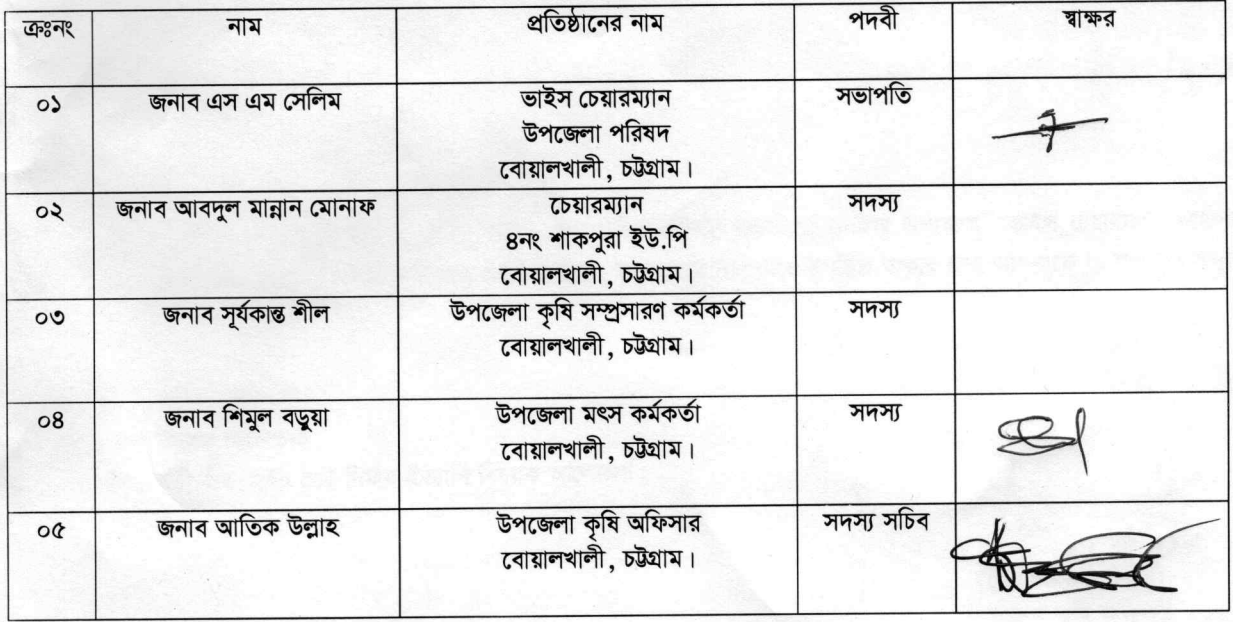 ক্রঃনং নাম প্রতিষ্ঠানের নাম পদবী স্বাক্ষর
০১ জনাব এস এম সেলিম ভাইস চেয়ারম্যান সভাপতি
উপজেলা পরিষদ
বোয়ালখালী, চট্টগ্রাম।
০২ জনাব আবদুল মান্নান মোনাফ চেয়ারম্যান সদস্য
৪নং শাকপুরা ইউ.পি
বোয়ালখালী, চট্টগ্রাম।
০৩ জনাব সূর্যকান্ত শীল উপজেলা কৃষি সম্প্রসারণ কর্মকর্তা সদস্য
বোয়ালখালী, চট্টগ্রাম।
০৪ জনাব শিমুল বড়ুয়া উপজেলা মৎস কর্মকর্তা সদস্য
বোয়ালখালী, চট্টগ্রাম।
০৫ জনাব আতিক উল্লাহ উপজেলা কৃষি অফিসার সদস্য সচিব
বোয়ালখালী, চট্টগ্রাম।